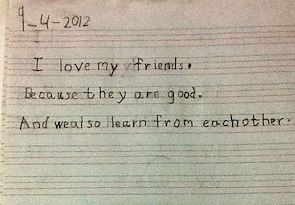 9-4-2012
I love my friends.
Because they are good.
And wealso learn from eachother.